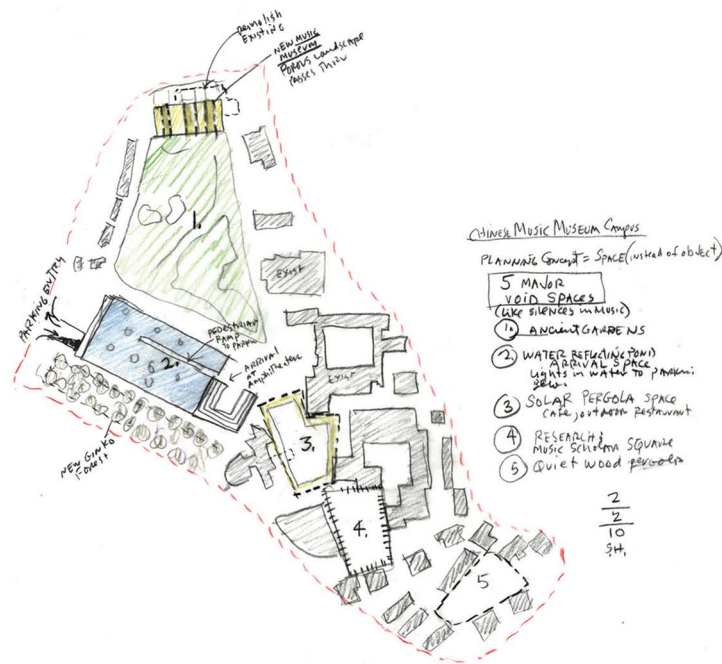 Demolish
EXISTING
NEW MUSIC
MUSEUM
POROUS Landscape
PASSES THRU
1.
EXIST
PARKING ENTRY
PEDESTRIAN
RAMP
TO PARKING
2.
ARRIVAL
Amphitheater
NEW GINKO
FOREST
EXIST
3.
4.
5
CHINESE MUSIC MUSEUM CAMPUS
PLANNING Concept = SPACE (instead of object)
5 MAJOR
VOID SPACES
(Like silences in Music)
1. ANCIENT GARDENS
2. WATER REFLECTING POND
ARRIVAL SPACE
Lights in WATER TO PARKING
BELOW.
3 SOLAR PERGOLA SPACE
CAFE / OUTDOOR RESTAURANT
4 RESEARCH &
MUSIC SCHOLARS SQUARE
5 Quiet wood pergola
2
2
10
S.H.